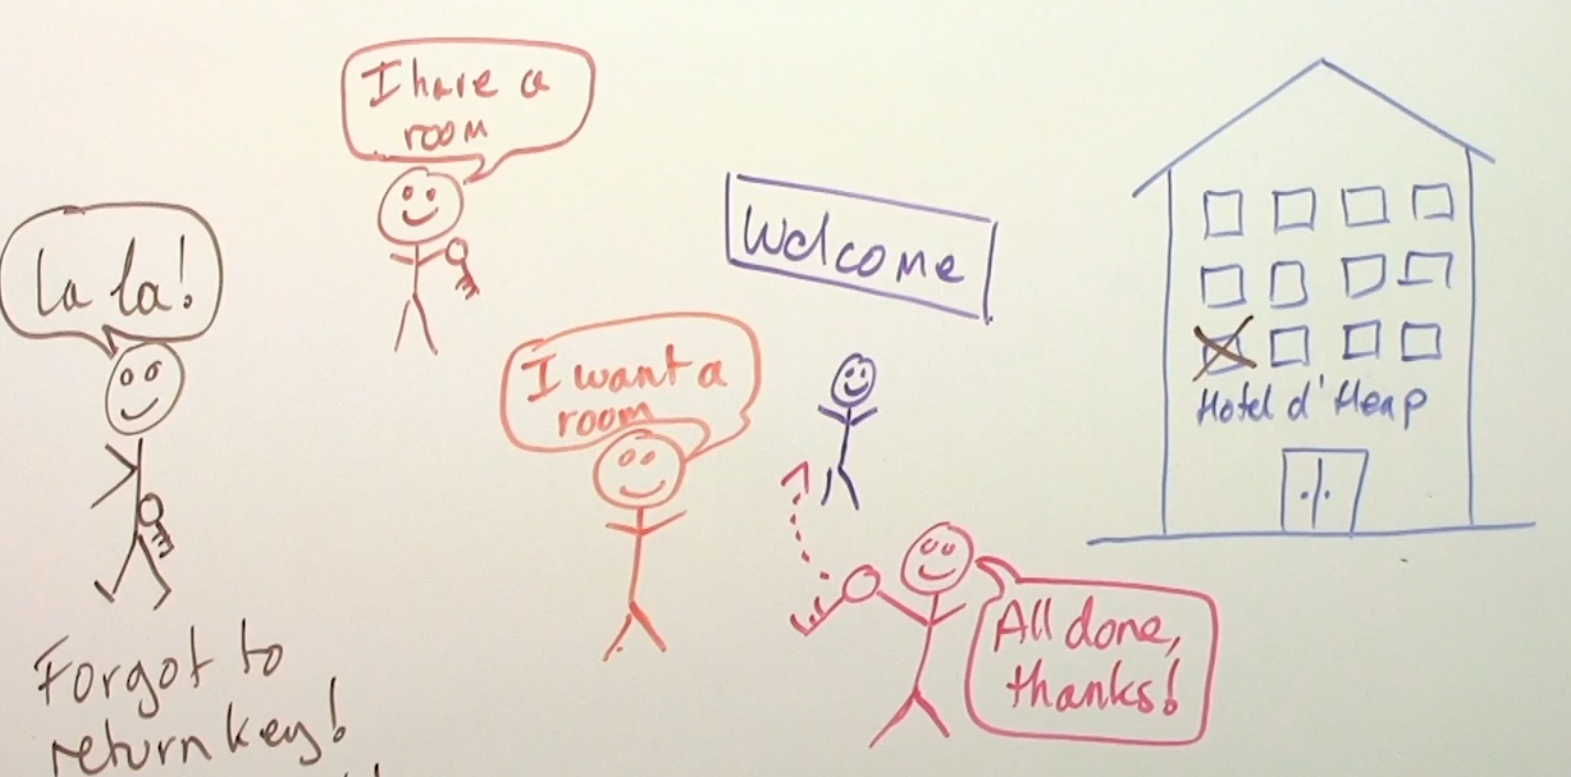 I have a
room
La la!
Welcome
I want a
room
Hotel d'Heap
All done,
thanks!
Forgot to
return key!